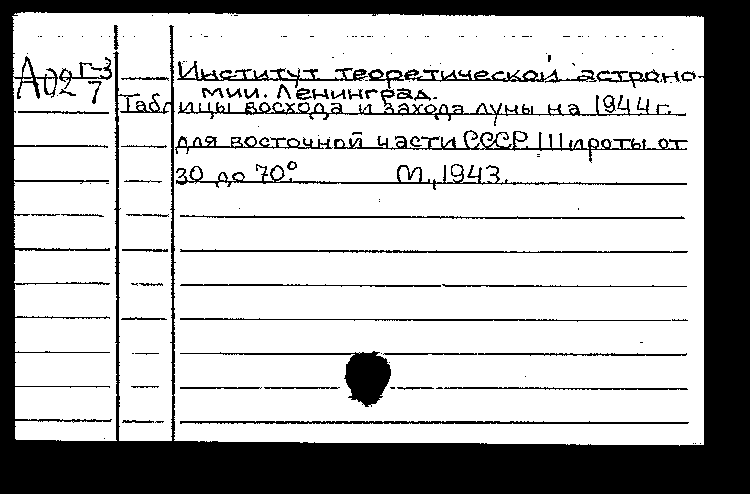 А02 Г-3
7
Институт теоретической астроно-
мии. Ленинград.
Таблицы восхода и захода луны на 1944г.
для восточной части СССР. Широты от
30 до 70° М., 1943.